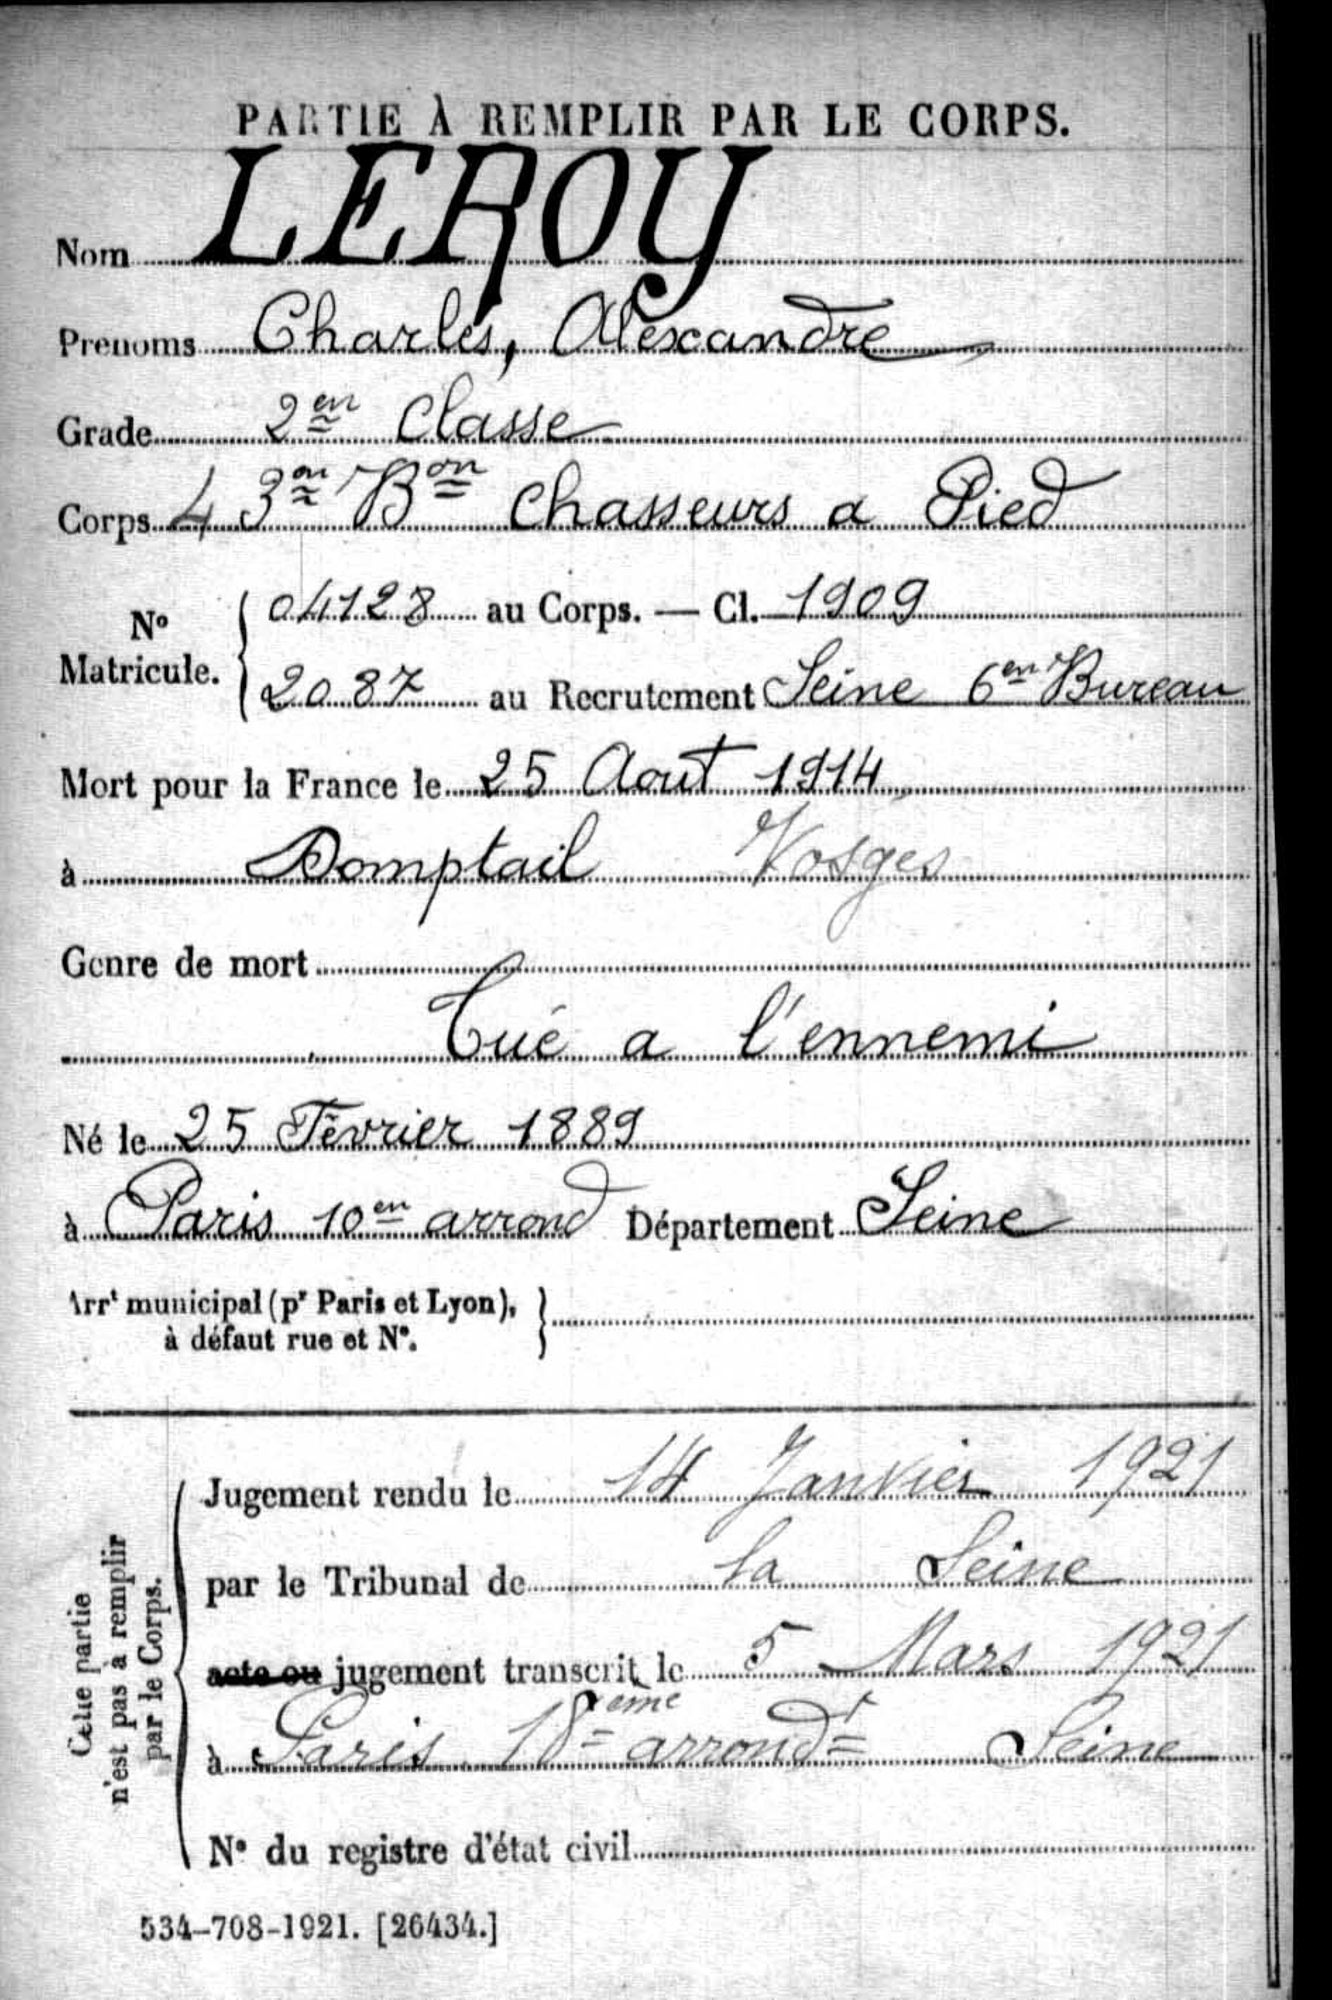 PARTIE À REMPLIR PAR LE CORPS.
Nom LEROY
Prenoms Charles, Alexandre
Grade 2en Classe
Corps 4 3en Bon Chasseurs a Pied
No Matricule.
04128 au Corps. — Cl. 1909
2087 au Recrutement Seine 6en Bureau
Mort pour la France le 25 Aout 1914
à Domptail Vosges
Genre de mort
Tué a l'ennemi
Né le 25 Février 1889
à Paris 10en arrond Département Seine
Arrt municipal (pr Paris et Lyon),
à défaut rue et No.
Cette partie
n'est pas à remplir
par le Corps.
Jugement rendu le 14 Janvier 1921
par le Tribunal de la Seine
acte ou jugement transcrit le 5 Mars 1921
à Paris 18ème arrondt Seine
No du registre d'état civil
534-708-1921. [26434.]